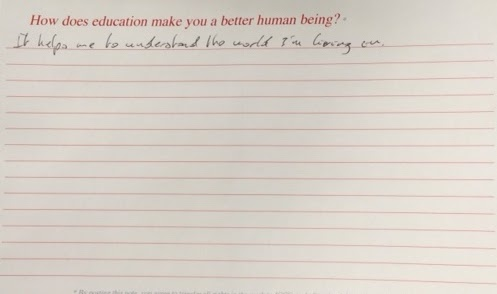 How does education make you a better human being? *
It helps me to understand the world I'm living on.